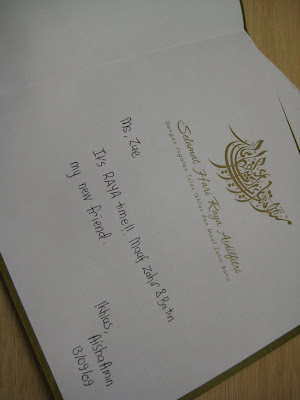 Selamat Hari Raya Aidilfitri
Dengan Ingatan Tulus Ikhlas dari
Ms. Zue
It's RAYA time!! Maaf Zahir & Batin
my new friend.
Ikhlas, AishaAmin
13/09/09